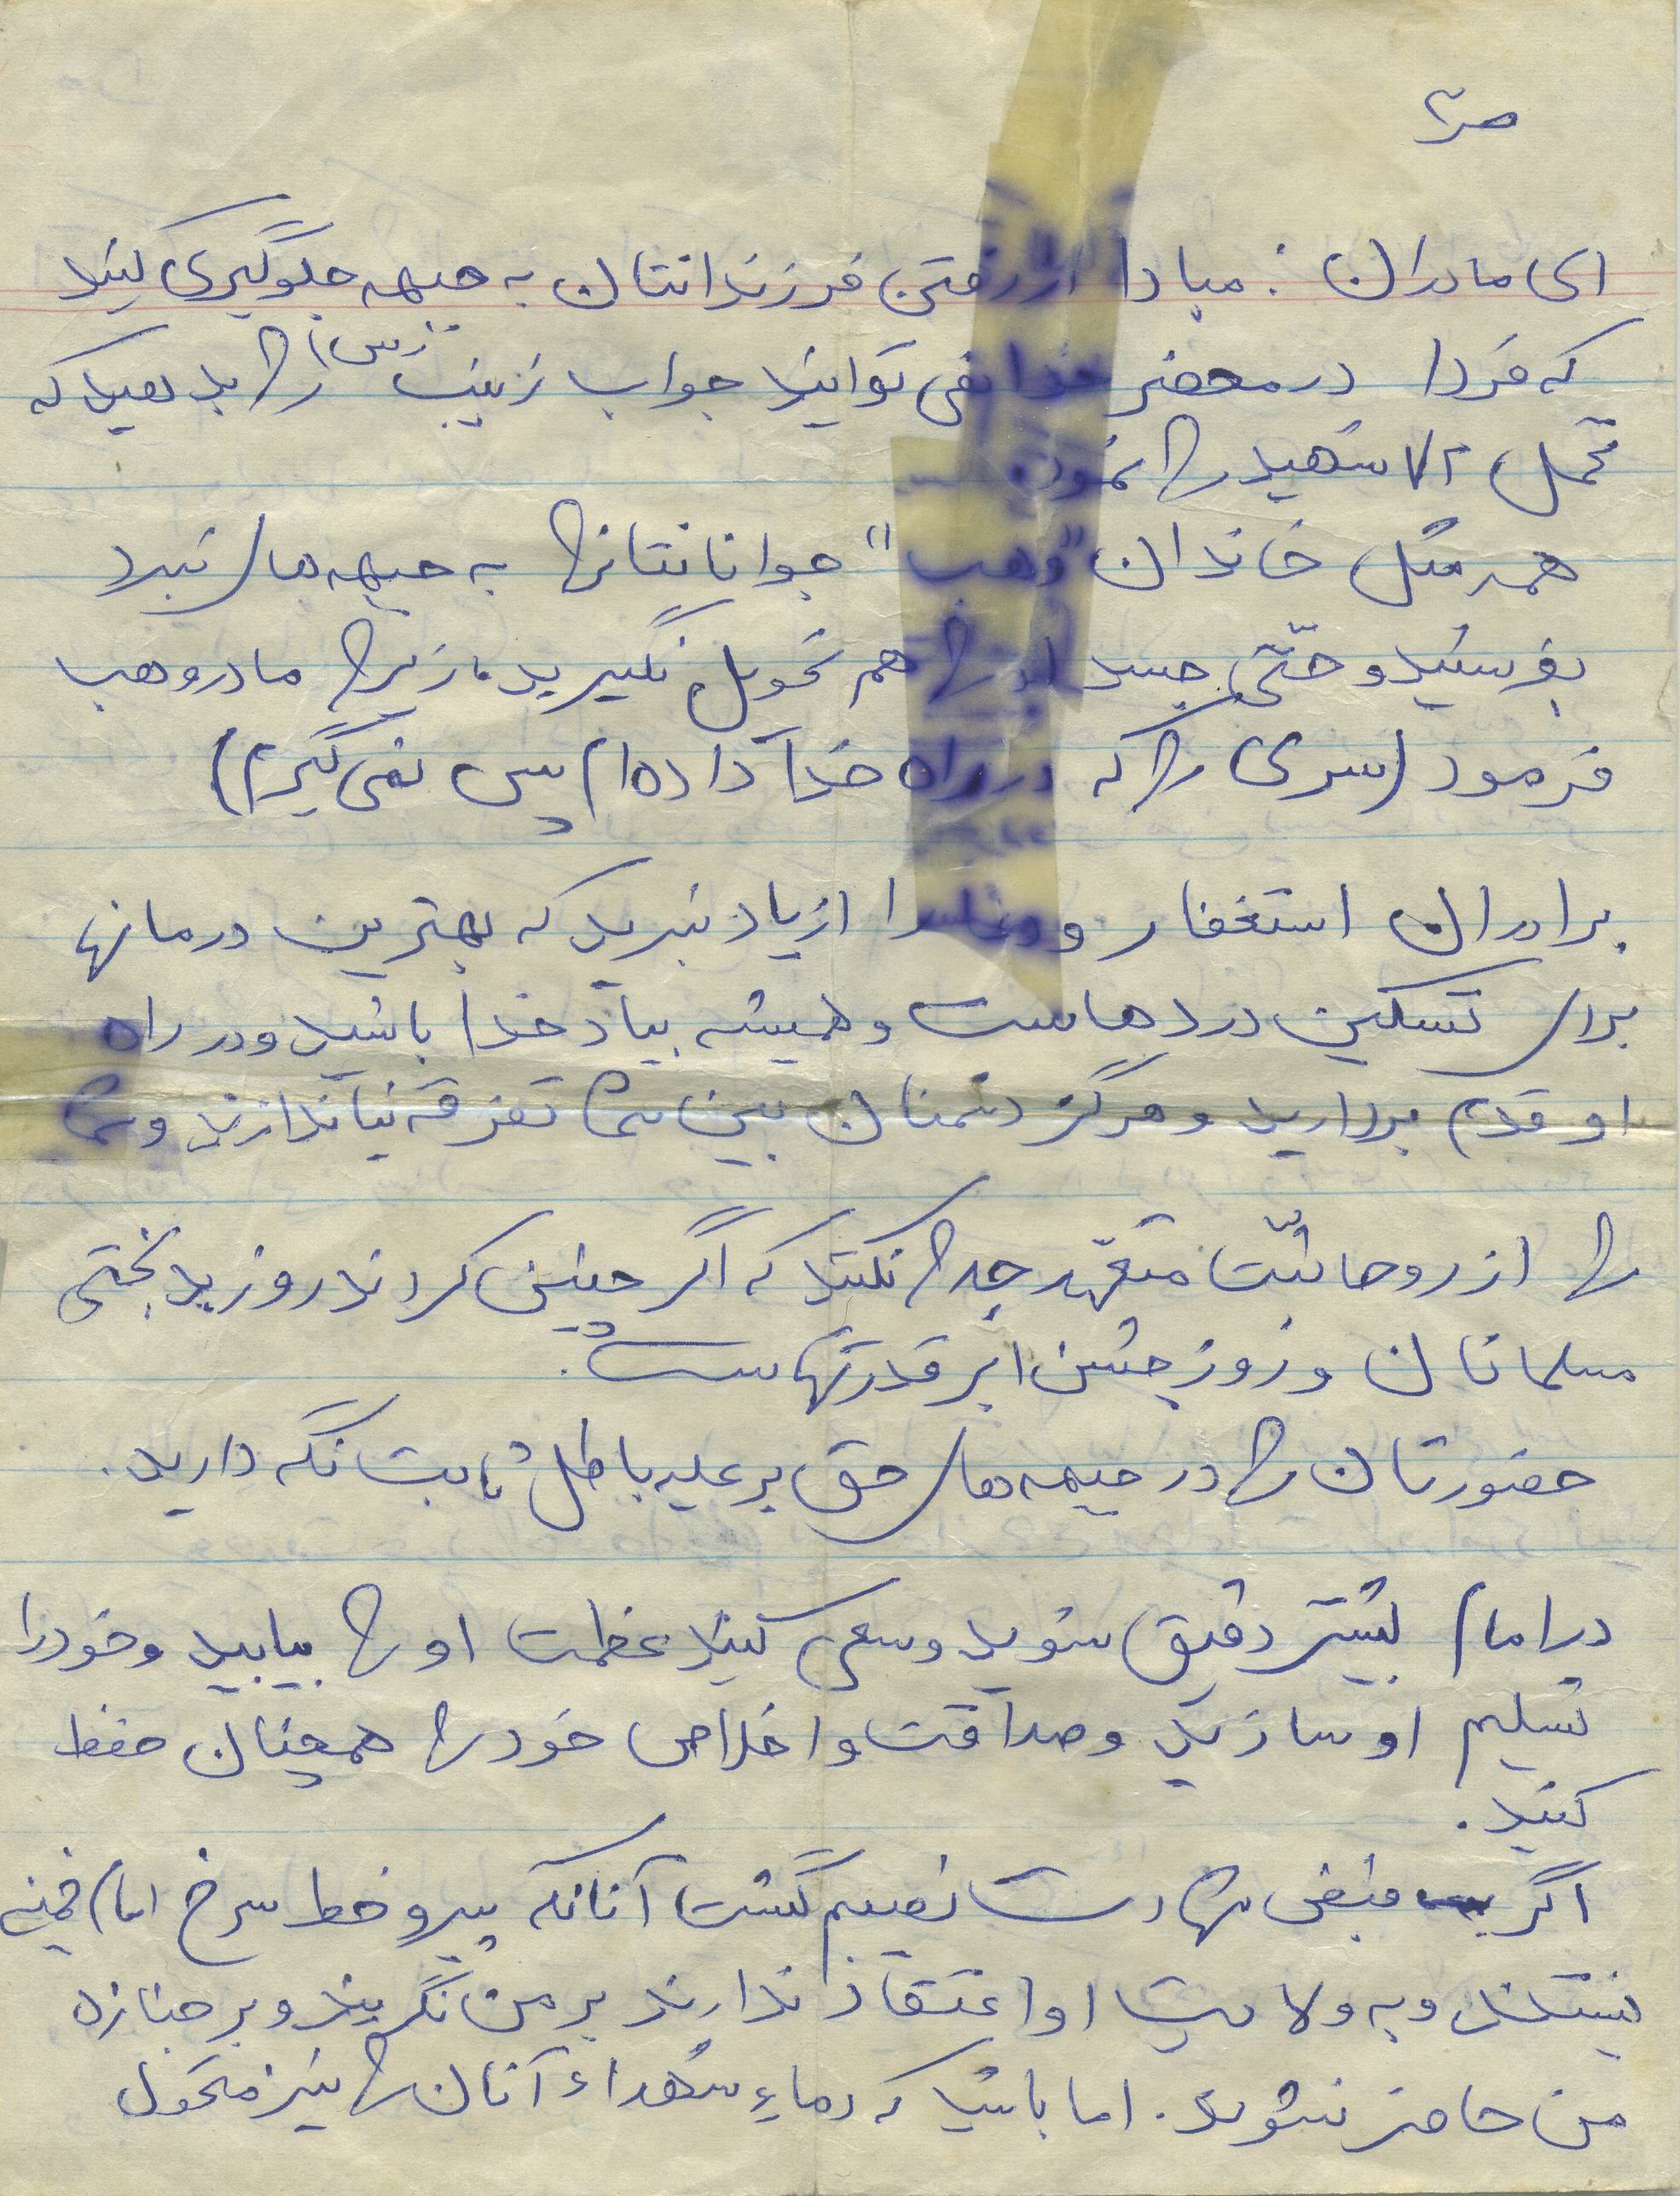 ص۲
ای مادران : مبادا از رفتن فرزندانتان به جبهه جلوگیری کنید
که فردا در محضر خدا نمی توانید جواب زینب (س) را بدهید که
تحمل ۷۲ شهید را نمود.
همه مثل خاندان "وهب" جوانانتانرا به جبهه های نبرد
بفرستید و حتّی جسد او را هم تحویل نگیرید، زیرا مادر وهب
فرمود (سری را که در راه خدا داده ام پس نمی گیرم)
برادران استغفار و دعا را از یاد نبرید که بهترین درمانها
برای تسکین دردهاست و همیشه بیاد خدا باشید و در راه
او قدم بردارید و هرگز دشمنان بین شما تفرقه نیاندازند و شما
را از روحانیّت متعهّد جدا نکنند که اگر چنین کردند روز بدبختی
مسلمانان و روز جشن ابرقدرتهاست.
حضورتان را در جبهه های حق بر علیه باطل ثابت نگه دارید.
در امام بیشتر دقیق شوید و سعی کنید عظمت او را بیابید و خود را
تسلیم او سازید و صداقت و اخلاص خود را همچنان حفظ
کنید.
اگر فیض شهادت نصیبم گشت آنانکه پیرو خط سرخ امام خمینی
نیستند و به ولایت او اعتقاد ندارند بر من نگریند و بر جنازه
من حاضر نشوند. اما باشد که دماء شهداء آنان را نیز متحول